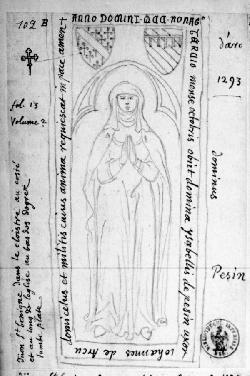 102 B
ANNO DOMINI · MCC NONAG°
TERCIO mense octobris obiit domina ysabellis de pesin uxor
Iohannes de Arcu
domicelus et militis cuius anima requiescat in pace amen +
d'arc
1293
fol. 13
Volume 2
dominus
Pesin
Dijon St benigne dans le cloistre au costé
et au long de l'eglise au bas des degrez
tombe platte